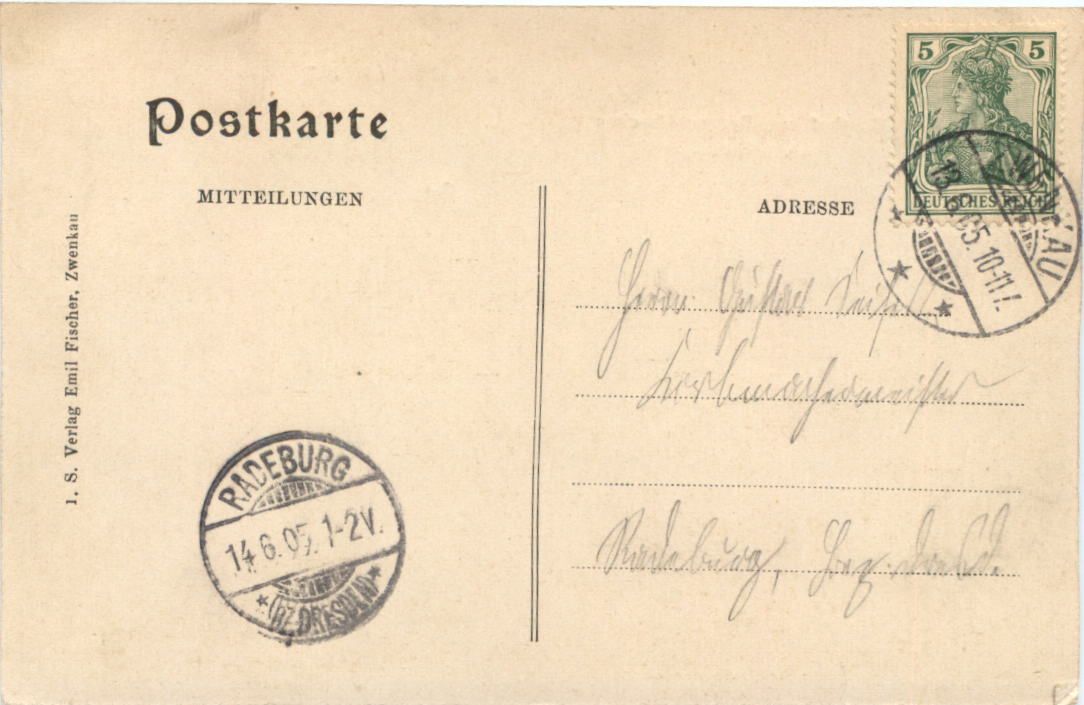 Postkarte
MITTEILUNGEN
ADRESSE
1. S. Verlag Emil Fischer, Zwenkau
5 5
DEUTSCHES REICH
ZWENKAU
13.6.05.10-11
RADEBURG
14.6.05.1-2V.
(BZ.DRESDEN)
Herrn Gustav
Korbmachermeister
Radeburg, Bez. Dresd.